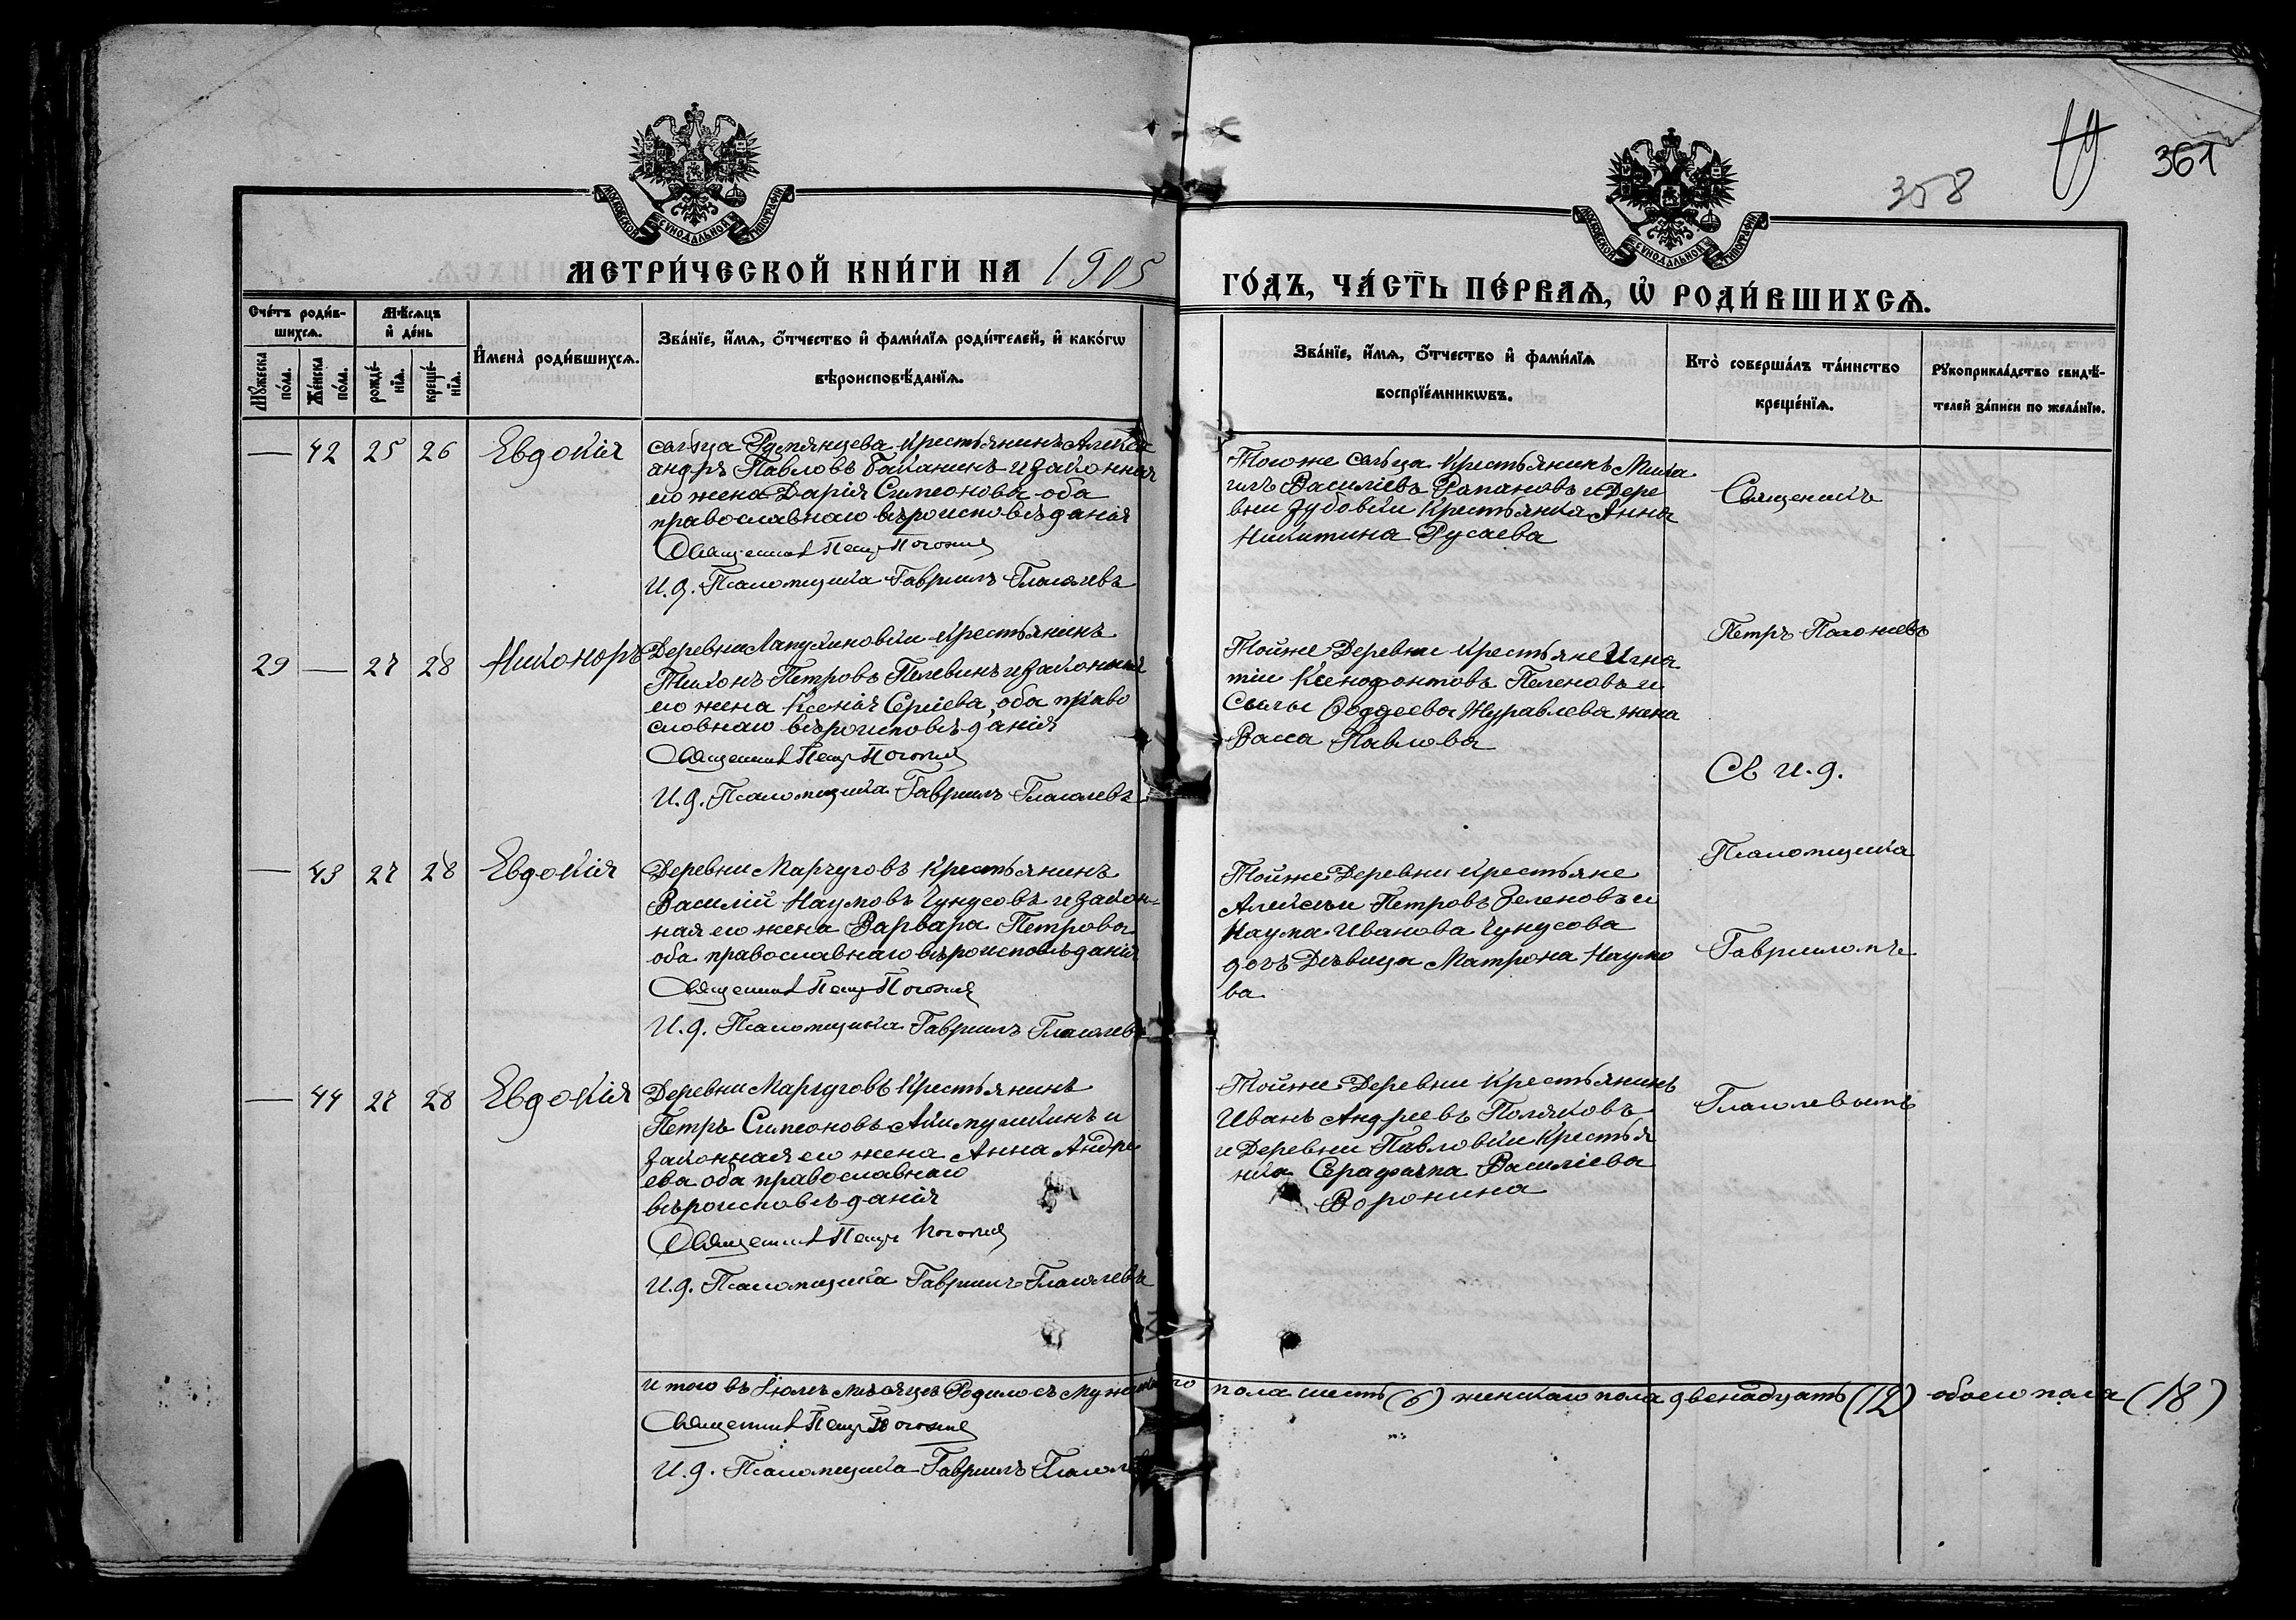 358
361
МОСКОВСКОЙ СѴНОДАЛЬНОЙ ТИПОГРАФІИ
МОСКОВСКОЙ СѴНОДАЛЬНОЙ ТИПОГРАФІИ
МЕТРИ́ЧЕСКОЙ КНИ́ГИ НА 1905
ГО́ДЪ, ЧА́СТЬ ПЕ́РВАѦ, Ѡ҆ РОДИ́ВШИХСѦ.
Сче́тъ роди́в-
шихсѧ.
Мѣ́сѧцъ
и҆ де́нь
Мꙋ́жеска
по́ла.
Же́нска
по́ла.
рожде́-
нїѧ.
креще́-
нїѧ.
И҆мена̀ роди́вшихсѧ.
Зва́нїе, и҆́мѧ, ѻ҆́тчество и҆ фамѝлїѧ роди́телей, и҆ како́гѡ
вѣроисповѣ́данїѧ.
Зва́нїе, и҆́мѧ, ѻ҆́тчество и҆ фамѝлїѧ
воспрїе́мникѡвъ.
Кто̀ соверша́лъ та́инство
креще́нїѧ.
Рꙋкоприкла́дство свидѣ́-
телей за́писи по жела́нїю.
— 42 25 26 Евдокія
сельца Румянцева крестьянинъ Алекса
андръ Павловъ Баканинъ и законная
его жена Дарія Симеонова оба
православнаго вѣроисповѣданія
Священникъ Петръ
И. д. Псаломщика Гавриилъ Глаголевъ
Тогоже сельца крестьянинъ Миха
илъ Василіевъ Рапановъ и Дере
вни Зубовки крестьянка Анна
Никитина Русаева
Священникъ
29 — 27 28 Никоноръ
Деревни Лапухиновки крестьянинъ
Тихонъ Петровъ Пелевинъ и законная
его жена Ксенія Сергіева, оба право
славнаго вѣроисповѣданія
Священникъ Петръ
И. д. Псаломщика Гавриилъ Глаголевъ
Тойже Деревни крестьяне Игна
тіи Ксенофонтовъ Пеленовъ и
Сылы Фаддеева Журавлева жена
Васса Павлова
Петръ
Св и. д.
— 43 27 28 Евдокія
Деревни Маргуговъ крестьянинъ
Василій Наумовъ Чунусовъ и закон-
ная его жена Варвара Петрова
оба православнаго вѣроисповѣданія
Священникъ Петръ
И. д. Псаломщика Гавриилъ Глаголевъ
Тойже Деревни крестьяне
Алексѣи Петровъ Зеленовъ и
Наума Иванова Чунусова
дочь Дѣвица Матрона Наумо
ва
Псаломщика
Гаврииломъ
— 44 27 28 Евдокія
Деревни Маргуговъ крестьянинъ
Петръ Симеоновъ и
законная его жена Анна Андре
ева оба православнаго
вѣроисповѣданія
Священникъ Петръ
И. д. Псаломщика Гавриилъ Глаголевъ
Тойже Деревни крестьянинъ
Иванъ Андреевъ Поляковъ
и Деревни Павловки крестья
нка Серафима Василіева
Воронина
Глаголевымъ
итого въ Іюлѣ мѣсяцѣ Родилось мужескаго пола шесть (6) женскаго пола двенадцать (12) обоего пола (18)
Священникъ Петръ
И. д. Псаломщика Гавриилъ Глаголевъ